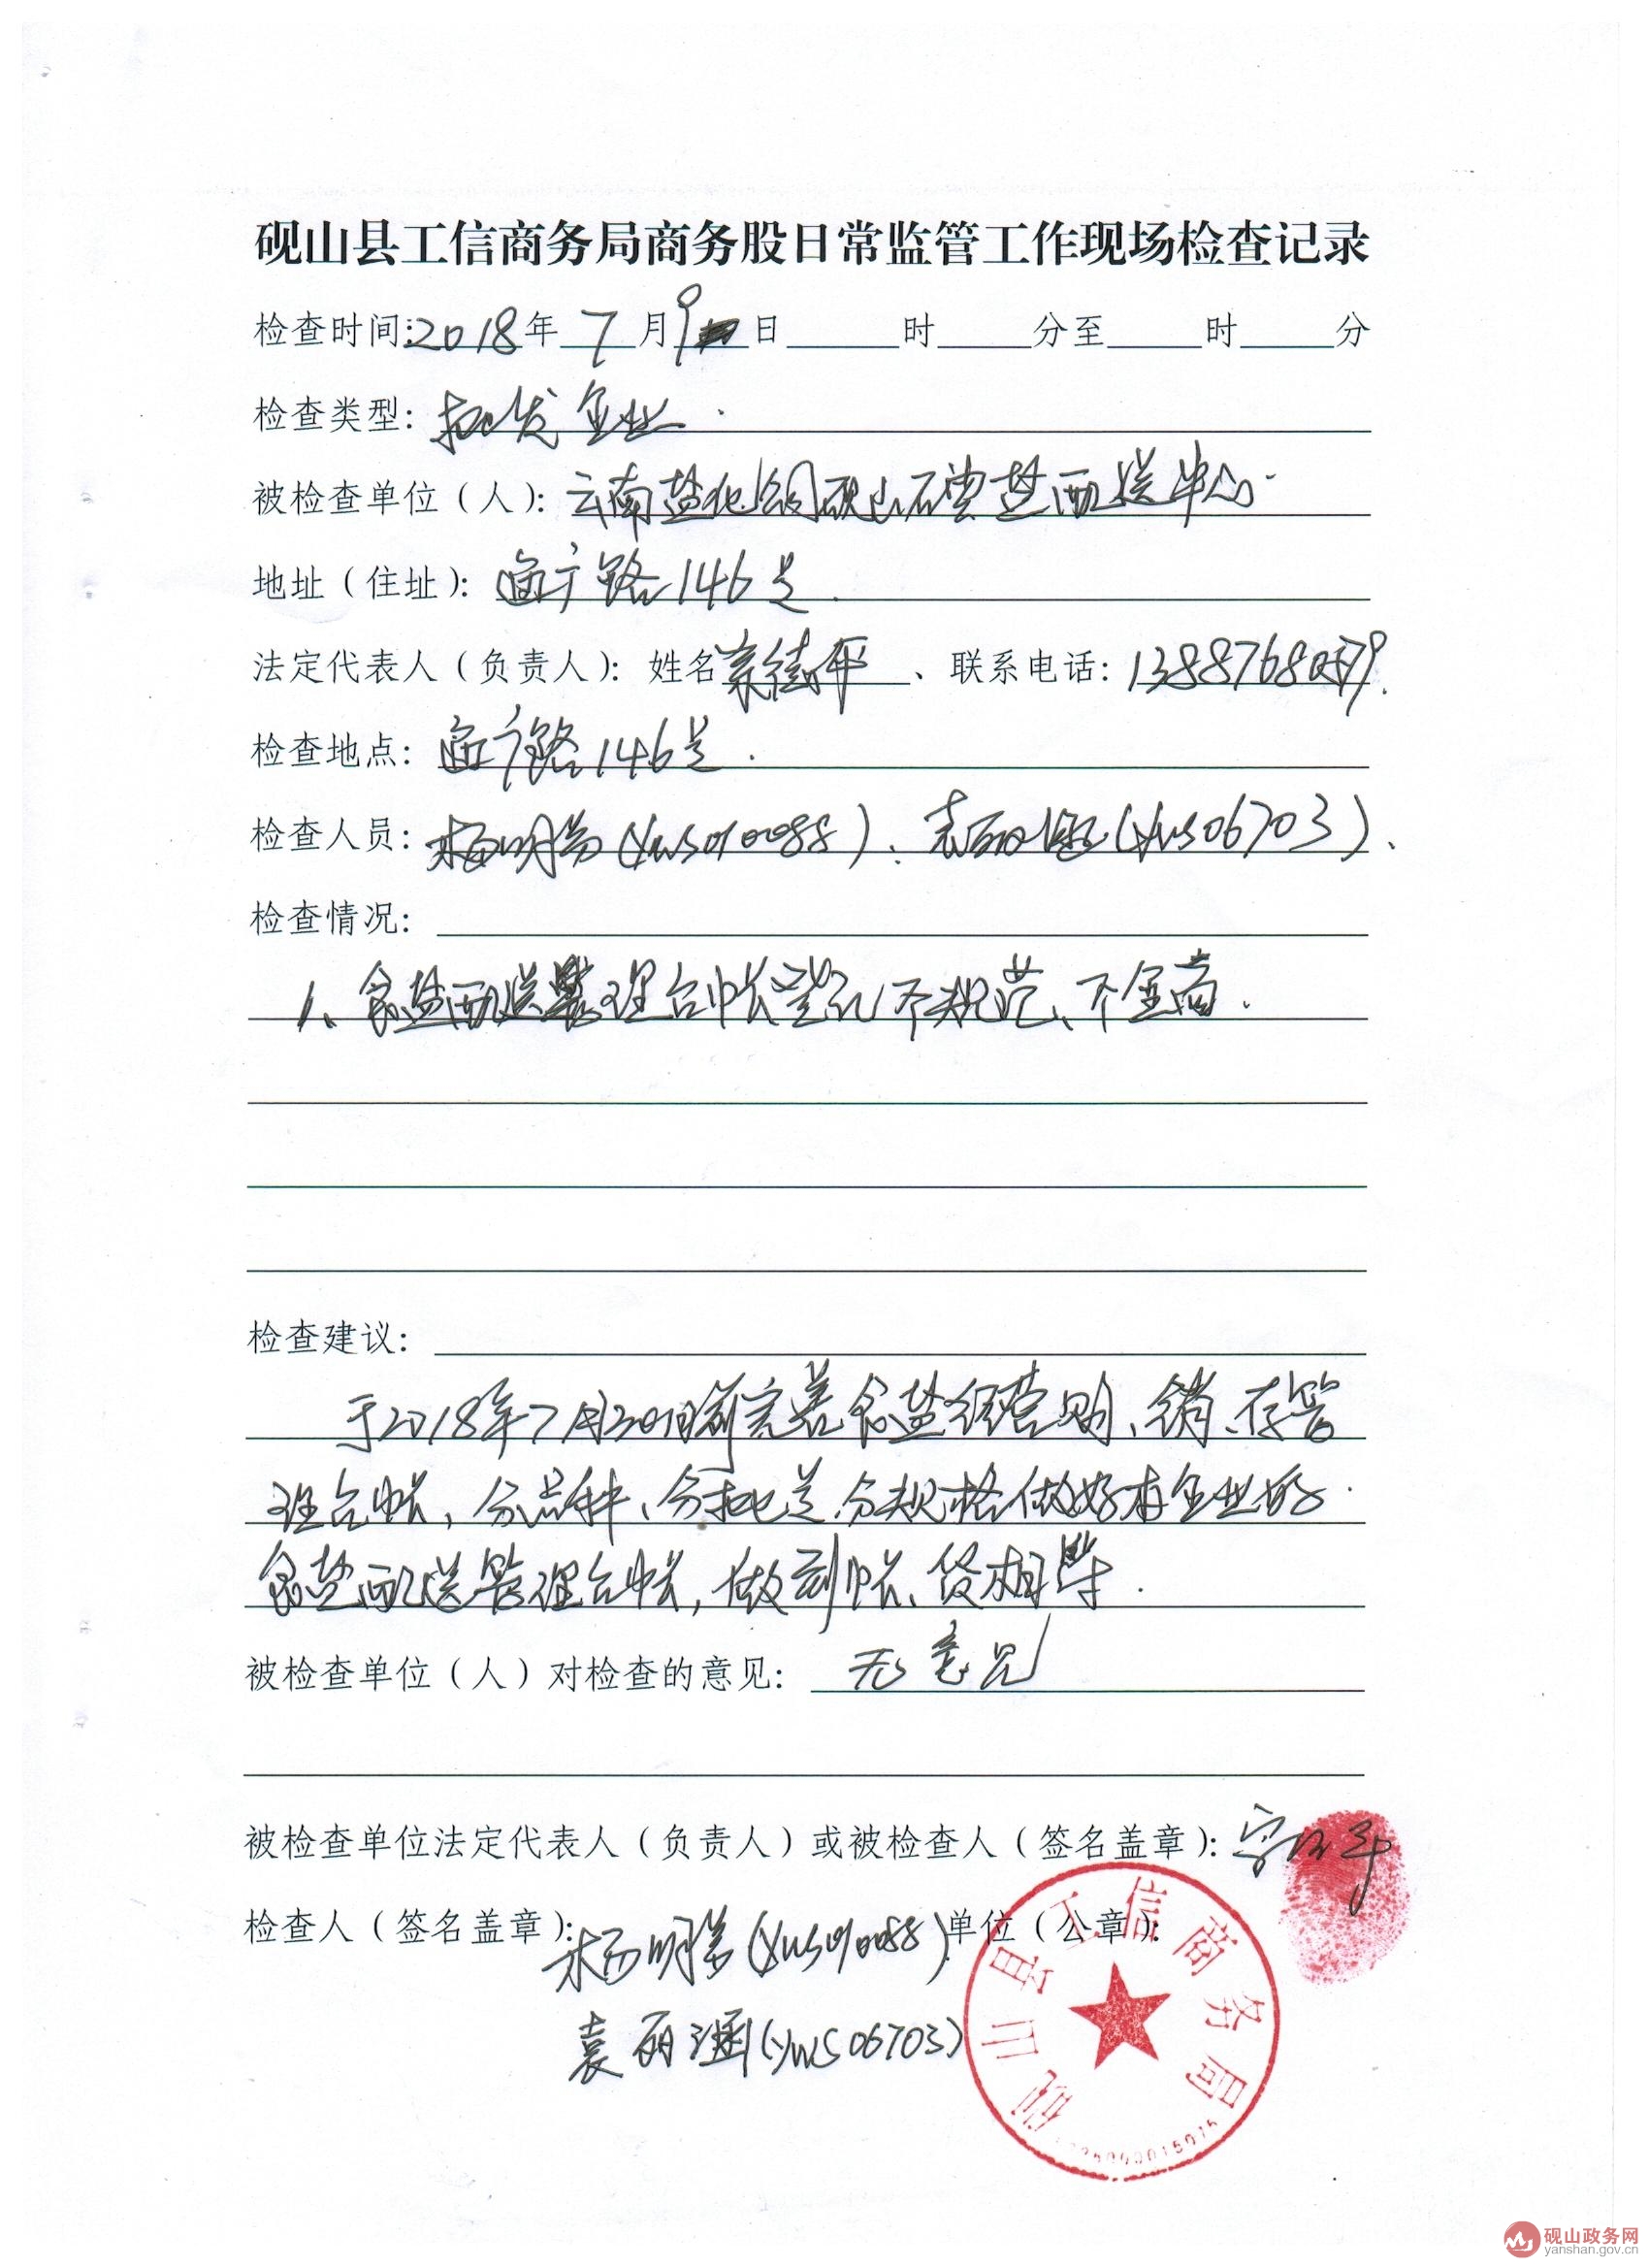 砚山县工信商务局商务股日常监管工作现场检查记录
检查时间:2018年7月9日 时 分至 时 分
检查类型:批发企业.
被检查单位(人):云南盐化 砚山 盐配送中心.
地址(住址):通广路146号.
法定代表人(负责人):姓名 平、联系电话:1388768
检查地点:通广路146号.
检查人员:杨明 (YWS010088)、袁丽涵(YWS06703)、
检查情况:
1、食盐配送管理台帐登记不规范、不全面.
检查建议:
于2018年7月30日前完善食盐经营购、销、存管
理台帐,分品种、分批号、分规格做好本企业的
食盐配送管理台帐,做到帐、货相符.
被检查单位(人)对检查的意见:无意见
被检查单位法定代表人(负责人)或被检查人(签名盖章): 平
检查人(签名盖章):杨明 (YWS010088) 单位(公章):
袁丽涵(YWS06703)
砚山县工信商务局
砚山政务网
yanshan.gov.cn